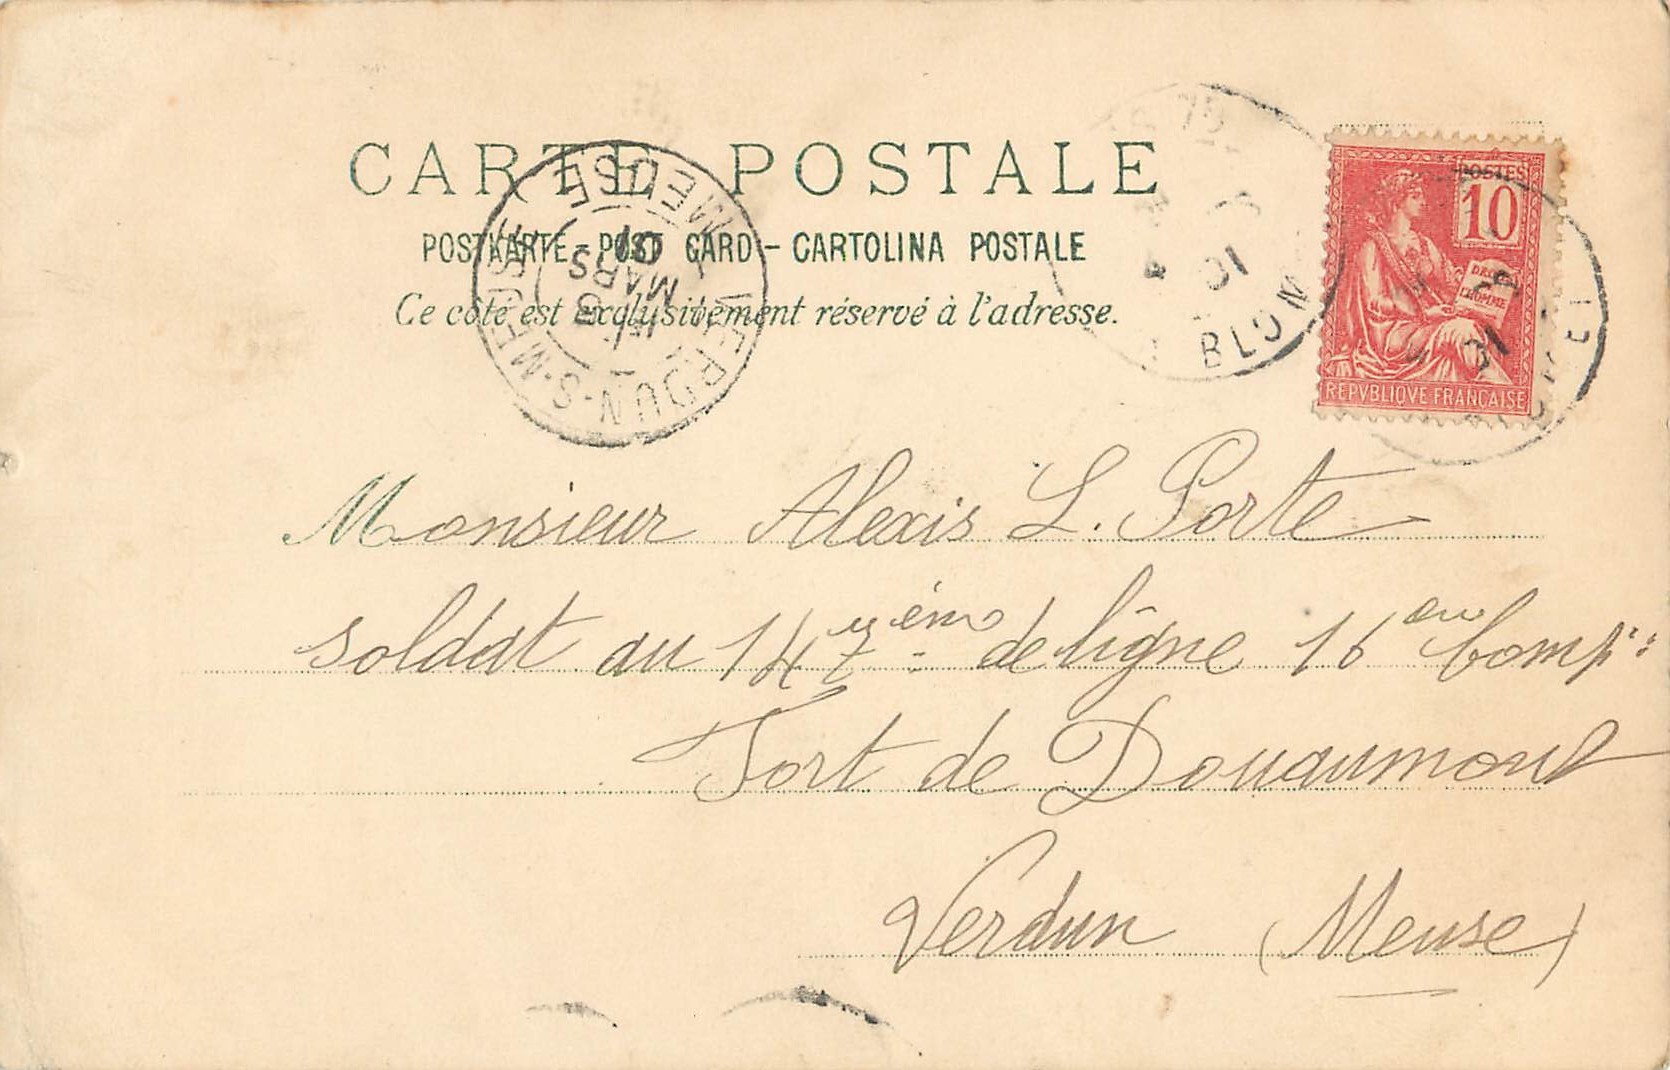 CARTE POSTALE
POSTKARTE - POST CARD - CARTOLINA POSTALE
Ce côté est exclusivement réservé à l'adresse.
VERDUN-S-MEUSE MEUSE
MARS
01
POSTES
10
DE L'HOMME
REPVBLIQVE FRANÇAISE
01
BLON
01
Monsieur Alexis L. Porte
soldat au 147ème de ligne 16 Comp:
Fort de Douaumont
Verdun (Meuse)